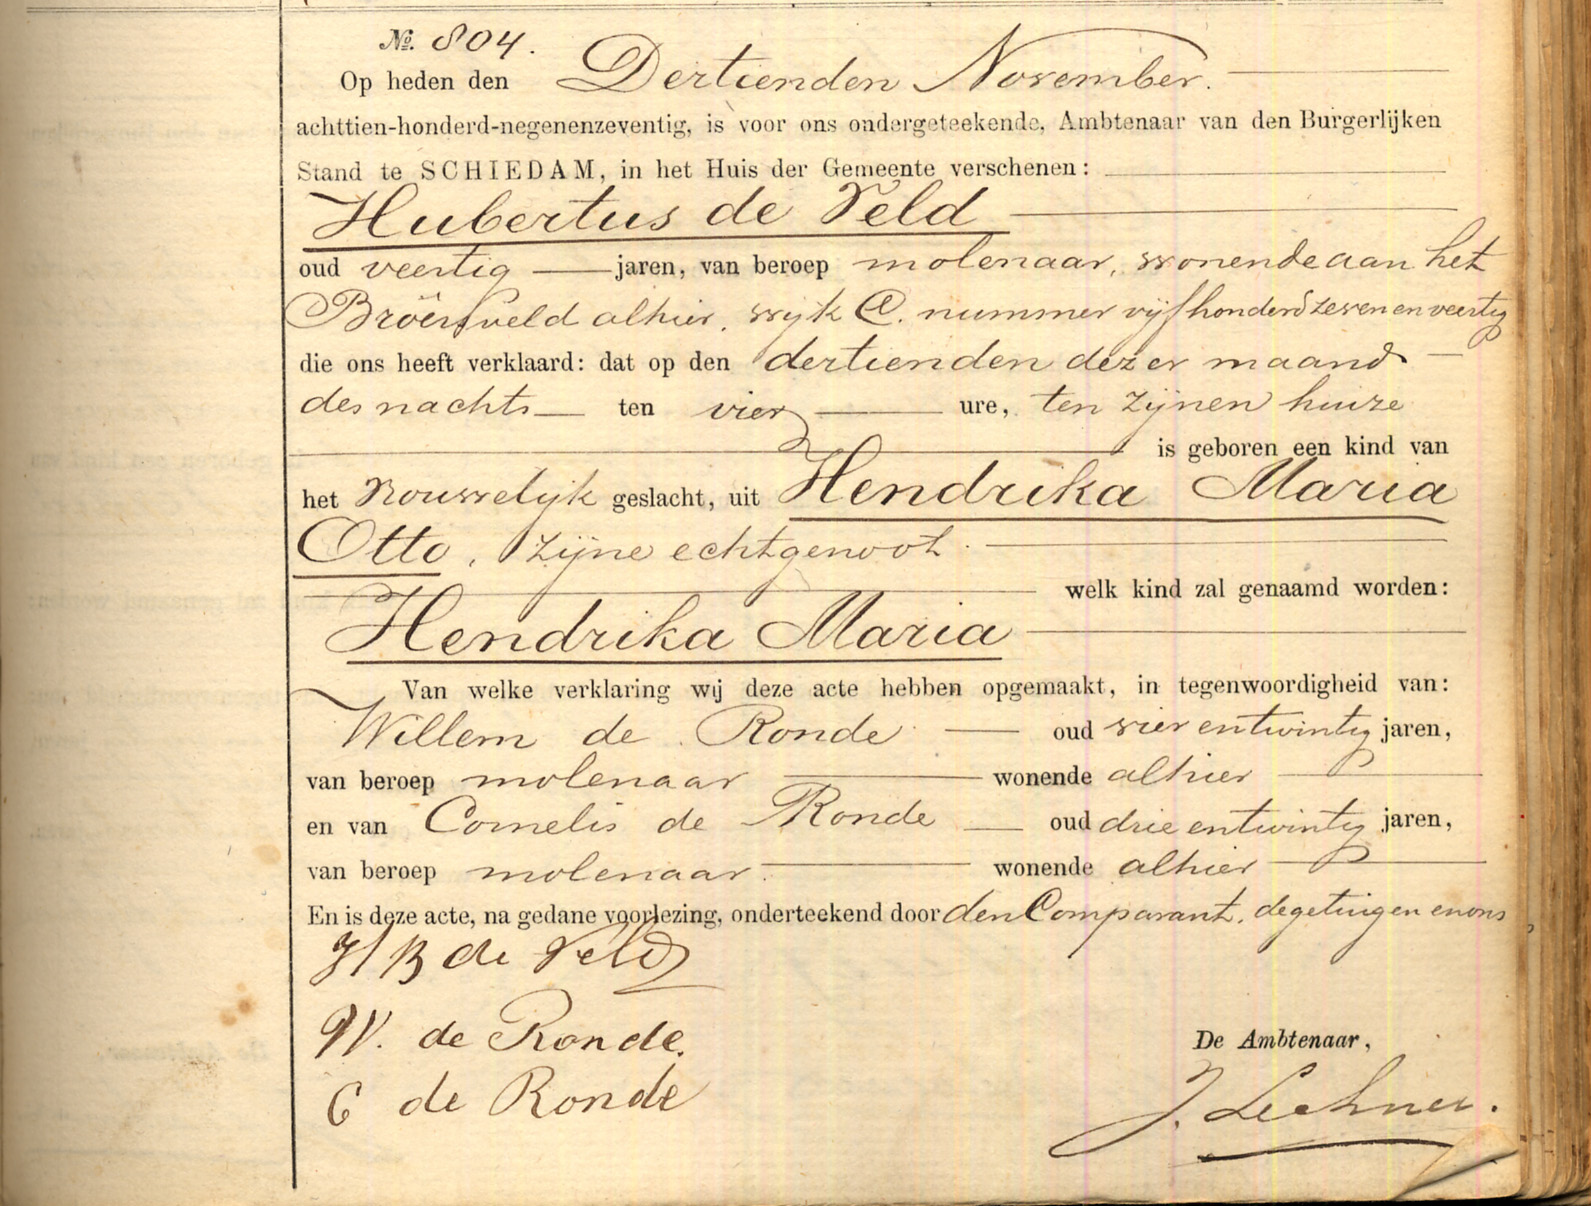 №. 804.
Op heden den Dertienden November.
achttien-honderd-negenenzeventig, is voor ons ondergeteekende, Ambtenaar van den Burgerlijken
Stand te SCHIEDAM, in het Huis der Gemeente verschenen:
Hubertus de Veld
oud veertig jaren, van beroep molenaar, wonende aan het
Broersveld alhier, wijk C. nummer vijfhonderd zeven en veertig
die ons heeft verklaard: dat op den dertienden dezer maand
des nachts ten vier ure, ten zijnen huize
is geboren een kind van
het vrouwelijk geslacht, uit Hendrika Maria
Otto, zijne echtgenoot.
welk kind zal genaamd worden:
Hendrika Maria
Van welke verklaring wij deze acte hebben opgemaakt, in tegenwoordigheid van:
Willem de Ronde oud vier en twintig jaren,
van beroep molenaar wonende alhier
en van Cornelis de Ronde oud drie en twintig jaren,
van beroep molenaar. wonende alhier
En is deze acte, na gedane voorlezing, onderteekend door den Comparant, de getuigen en ons
H B de Veld
W. de Ronde.
De Ambtenaar,
C de Ronde
J. Lechner.